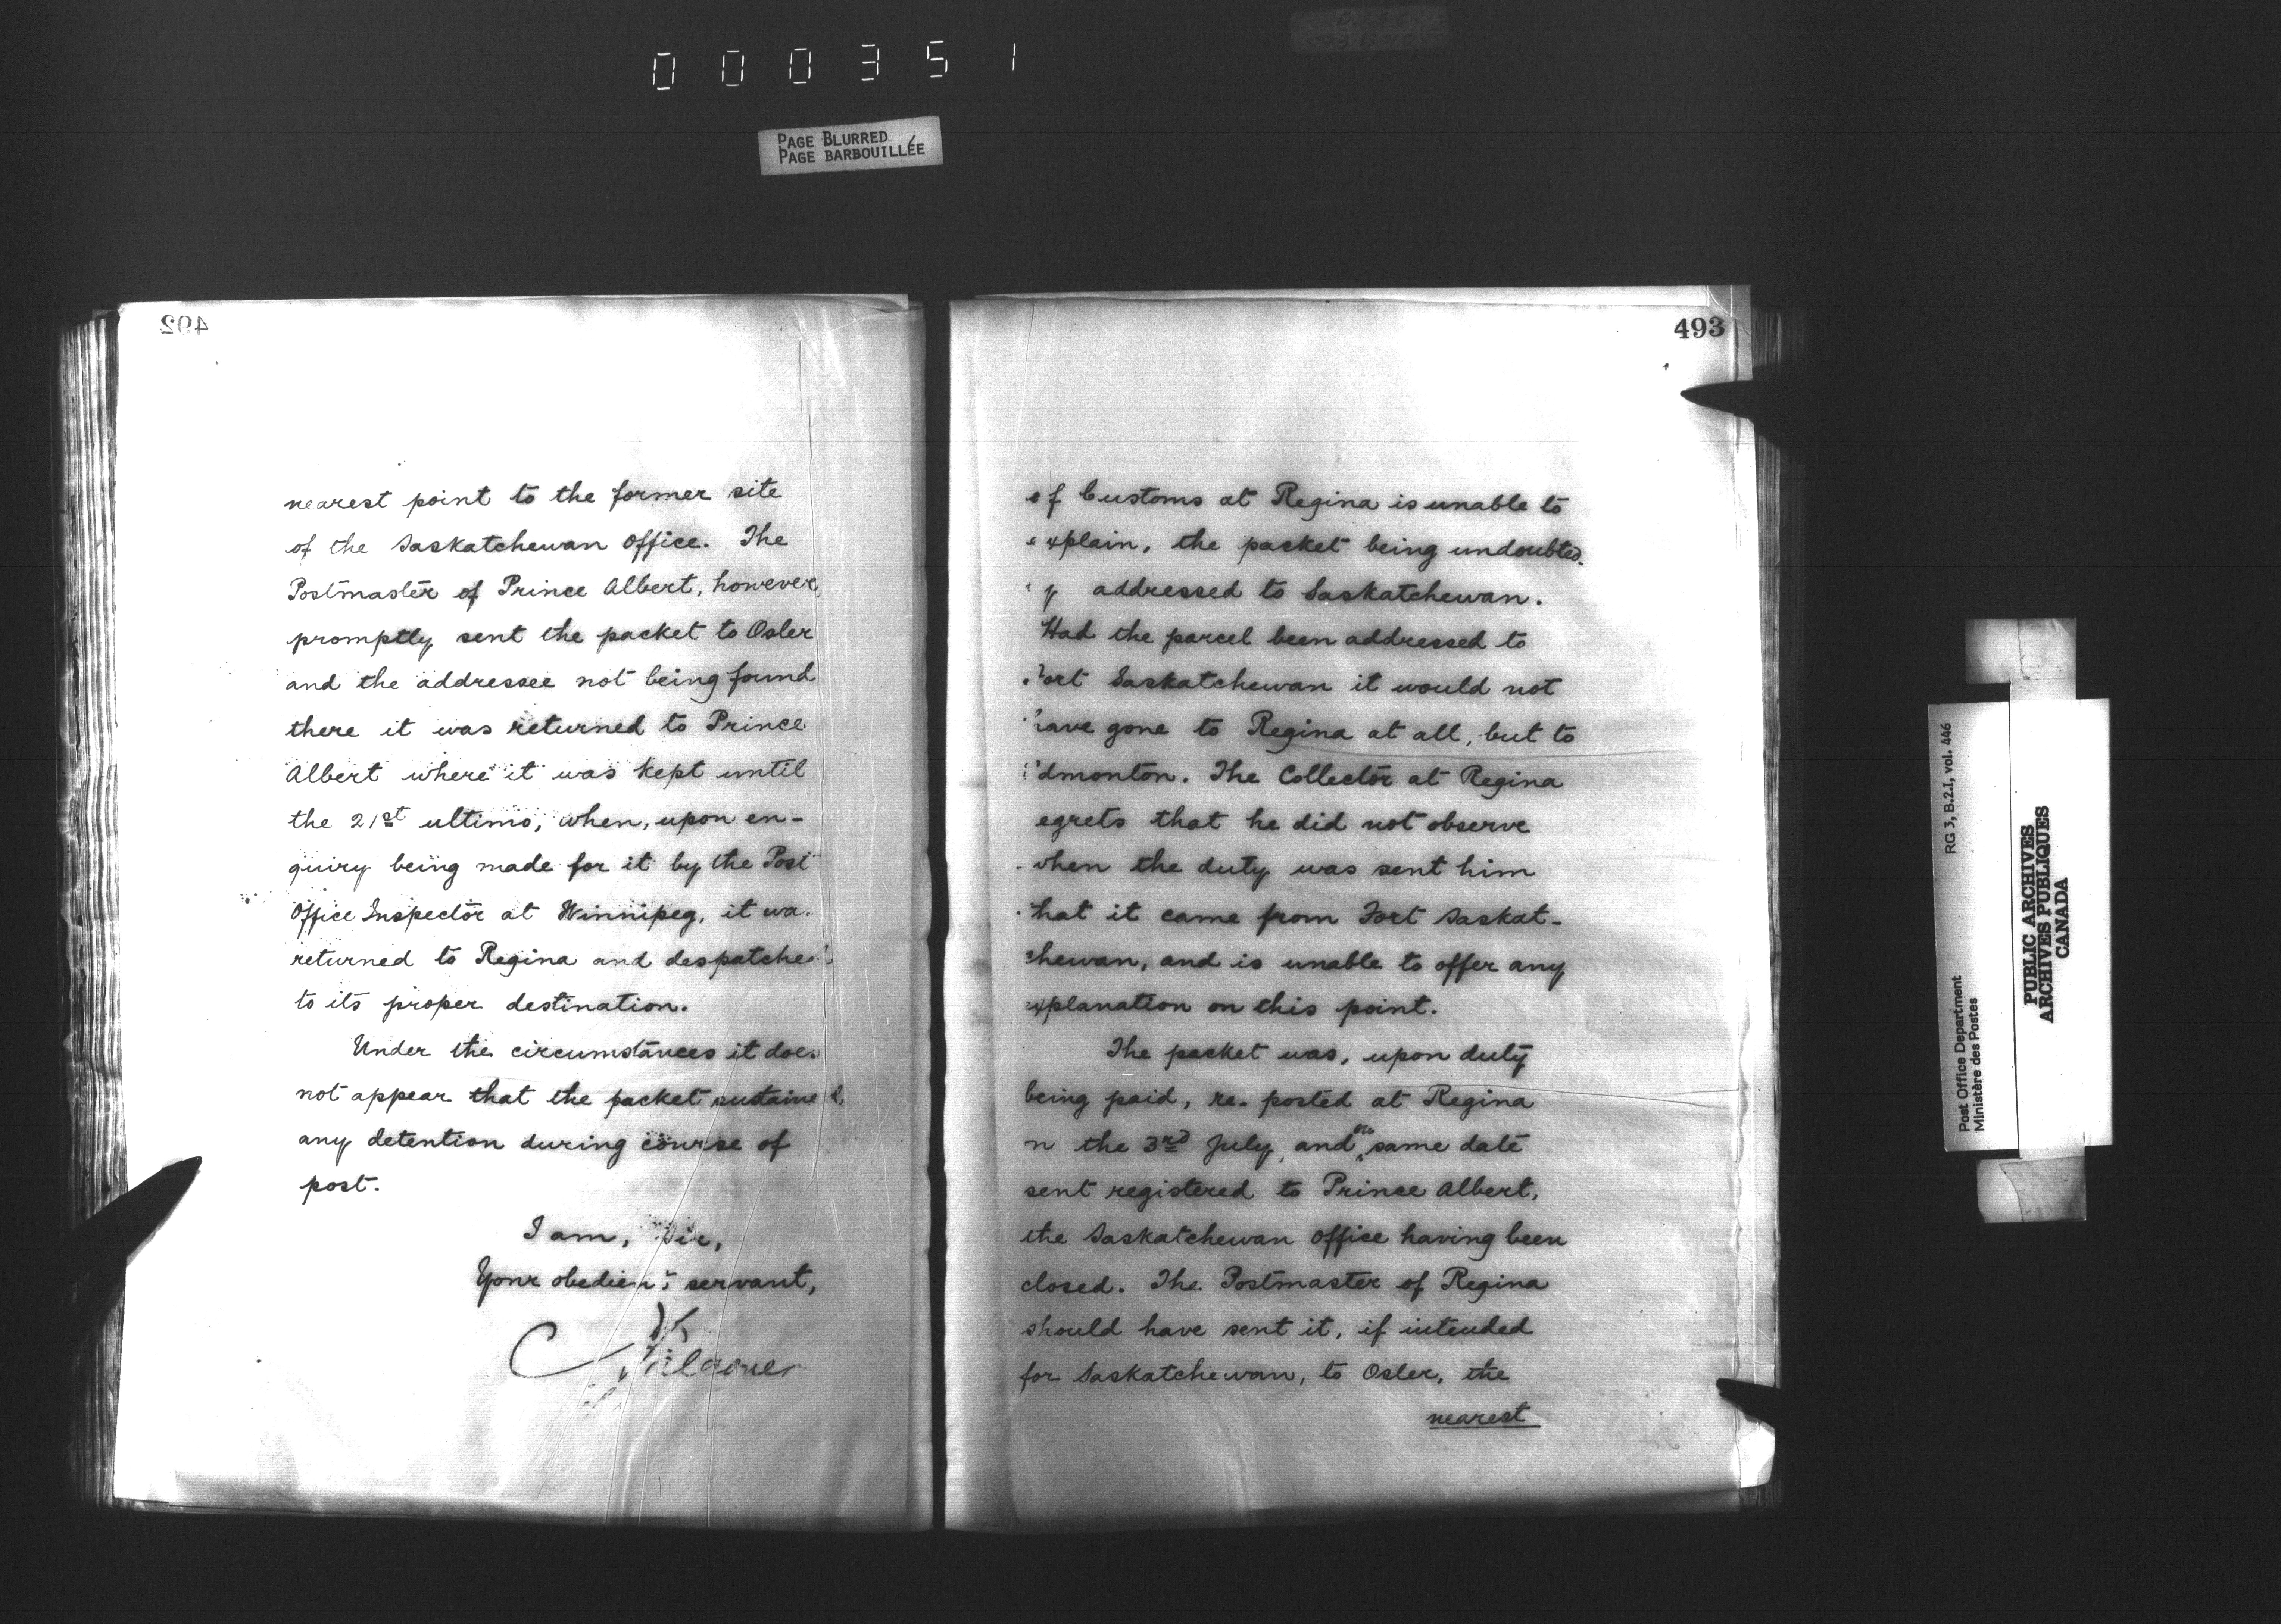 000351
PAGE BLURRED
PAGE BARBOUILLÉE
492
nearest point to the former site
of the Saskatchewan Office. The
Postmaster of Prince Albert, however
promptly sent the packet to Osler
and the addressee not being found
there it was returned to Prince
Albert where it was kept until
the 21st ultimo, when, upon en-
quiry being made for it by the Post
Office Inspector at Winnipeg, it wa
returned to Regina and despatched
to its proper destination.
Under the circumstances it does
not appear that the packet sustained
any detention during course of
post.
I am, Sir,
Your obedient servant,
493
of Customs at Regina is unable to
explain, the packet being undoubted
ly addressed to Saskatchewan.
Had the parcel been addressed to
Fort Saskatchewan it would not
have gone to Regina at all, but to
Edmonton. The Collector at Regina
egrets that he did not observe
when the duty was sent him
that it came from Fort Saskat-
chewan, and is unable to offer any
explanation on this point.
The packet was, upon duty
being paid, re-posted at Regina
n the 3rd July, and on same date
sent registered to Prince Albert,
the Saskatchewan Office having been
closed. The Postmaster of Regina
should have sent it, if intended
for Saskatchewan, to Osler, the
nearest
RG 3, B.2.I, vol. 446
Post Office Department
Ministère des Postes
PUBLIC ARCHIVES
ARCHIVES PUBLIQUES
CANADA